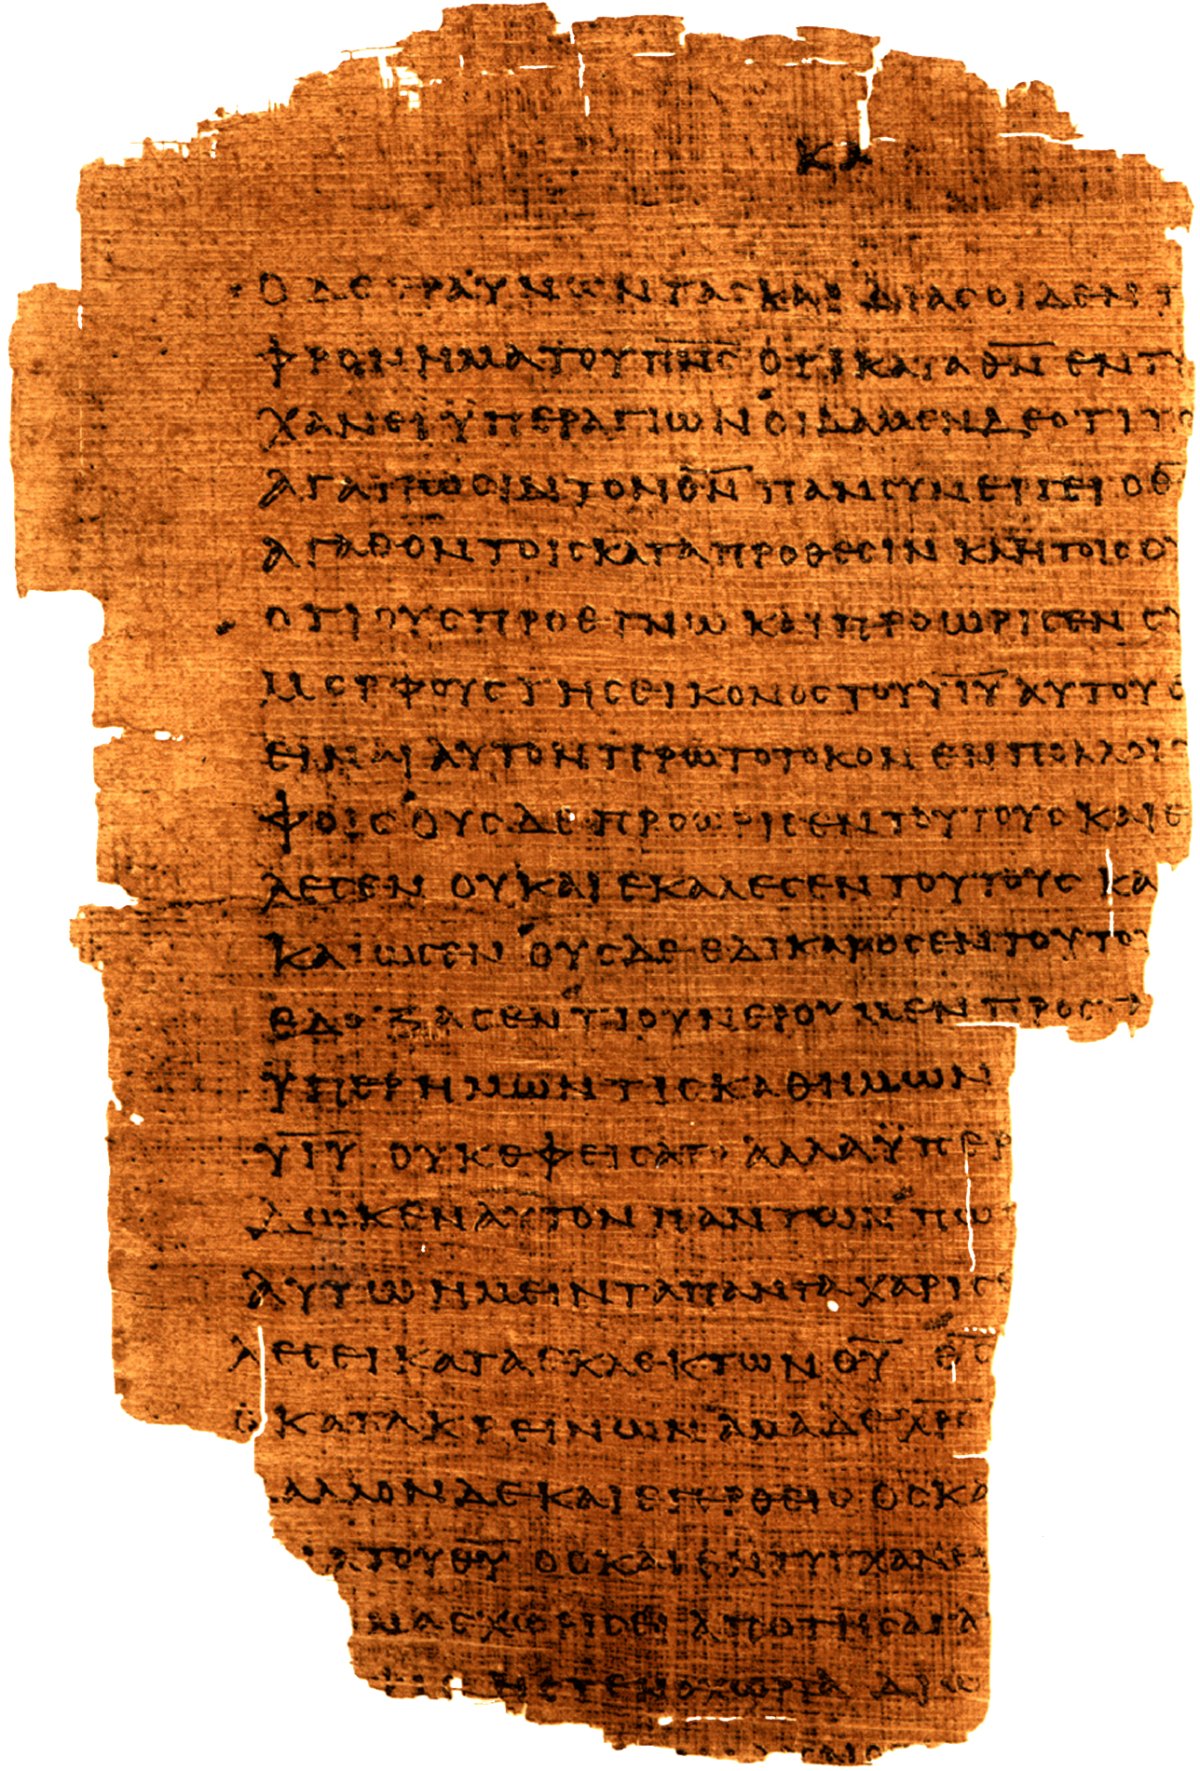 ΚΑ
Ο ΔΕ ΕΡΑΥΝΩΝ ΤΑΣ ΚΑΡΔΙΑΣ ΟΙΔΕΝ Τ
ΦΡΟΝΗΜΑ ΤΟΥ ΠΝΣ ΟΤΙ ΚΑΤΑ ΘΝ ΕΝΤΥ
ΧΑΝΕΙ ΫΠΕΡ ΑΓΙΩΝ ΟΙΔΑΜΕΝ ΔΕ ΟΤΙ ΤΟ
ΑΓΑΠΩΣΙΝ ΤΟΝ ΘΝ ΠΑΝ ΣΥΝΕΡΓΕΙ Ο Θ
ΑΓΑΘΟΝ ΤΟΙΣ ΚΑΤΑ ΠΡΟΘΕΣΙΝ ΚΛΗΤΟΙΣ ΟΥ
ΟΤΙ ΟΥΣ ΠΡΟΕΓΝΩ ΚΑΙ ΠΡΟΩΡΙΣΕΝ ΣΥ
ΜΟΡΦΟΥΣ ΤΗΣ ΕΙΚΟΝΟΣ ΤΟΥ ΥΙΥ ΑΥΤΟΥ Ε
ΕΙΝΑΙ ΑΥΤΟΝ ΠΡΩΤΟΤΟΚΟΝ ΕΝ ΠΟΛΛΟΙΣ
ΦΟΙΣ ΟΥΣ ΔΕ ΠΡΟΩΡΙΣΕΝ ΤΟΥΤΟΥΣ ΚΑΙ Ε
ΛΕΣΕΝ ΟΥ ΚΑΙ ΕΚΑΛΕΣΕΝ ΤΟΥΤΟΥΣ ΚΑ
ΚΑΙΩΣΕΝ ΟΥΣ ΔΕ ΕΔΙΚΑΙΩΣΕΝ ΤΟΥΤΟΥ
ΕΔΟΞΑΣΕΝ ΤΙ ΟΥΝ ΕΡΟΥΜΕΝ ΠΡΟΣ Τ
ΫΠΕΡ ΗΜΩΝ ΤΙΣ ΚΑΘ ΗΜΩΝ
ΥΙΥ ΟΥΚ ΕΦΕΙΣΑΤΟ ΑΛΛΑ ΫΠΕΡ
ΔΩΚΕΝ ΑΥΤΟΝ ΠΑΝΤΩΝ ΠΩ
ΑΥΤΩ ΗΜΕΙΝ ΤΑ ΠΑΝΤΑ ΧΑΡΙΣΕ
ΛΕΣΕΙ ΚΑΤΑ ΕΚΛΕΚΤΩΝ ΘΥ ΘΣ
Ο ΚΑΤΑΚΡΕΙΝΩΝ ΑΜΑ ΔΕ ΧΡΣ
ΑΛΛΟΝ ΔΕ ΚΑΙ ΕΓΕΡΘΕΙΣ ΟΣ ΚΑ
ΙΑ ΤΟΥ ΘΥ ΟΣ ΚΑΙ ΕΝΤΥΓΧΑΝΕΙ
ΜΑΣ ΧΩΡΙΣΕΙ ΑΠΟ ΤΗΣ ΑΓΑ
ΨΙΣ Η ΣΤΕΝΟΧΩΡΙΑ ΔΙΩ